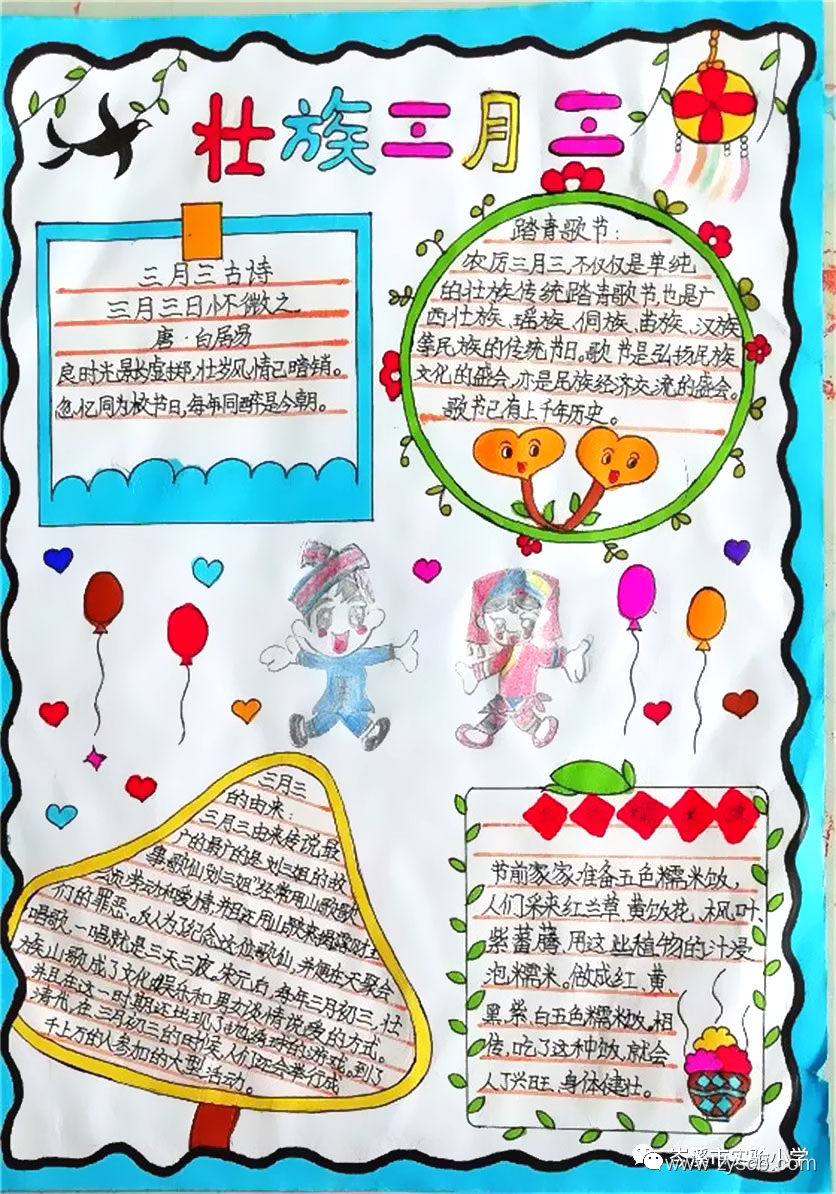 壮族三月三
三月三古诗
三月三日怀微之
唐·白居易
良时光景长虚掷,壮岁风情已暗销。
忽忆同为校书日,每年同醉是今朝。
踏青歌节:
农历三月三,不仅仅是单纯
的壮族传统踏青歌节,也是广
西壮族、瑶族、侗族、苗族、汉族
等民族的传统节日。歌节是弘扬民族
文化的盛会,亦是民族经济交流的盛会。
歌节已有上千年历史。
三月三
的由来:
三月三由来传说最
广的最广的是刘三姐的故
事歌仙刘三姐"经常用山歌歌
劳动和爱情,并且还用山歌来揭露财主
们的罪恶。后人为了纪念这位歌仙,并便在天聚会
唱歌,一唱就是三天三夜。宋元后,每年三月初三,壮
族山歌成了文化娱乐和男女谈情说爱的方式。
并且在这一时期还出现了抛绣球的游戏。到了
清代,在三月初三的时候,人们还会举行成
千上万的人参加的大型活动。
节前家家准备五色糯米饭,
人们采来红兰草、黄饭花、枫叶、
紫蕃藤,用这些植物的汁浸
泡糯米。做成红、黄、
黑、紫、白五色糯米饭。相
传,吃了这种饭,就会
人丁兴旺、身体健壮。
岑溪市实验小学
www.zyscb.com